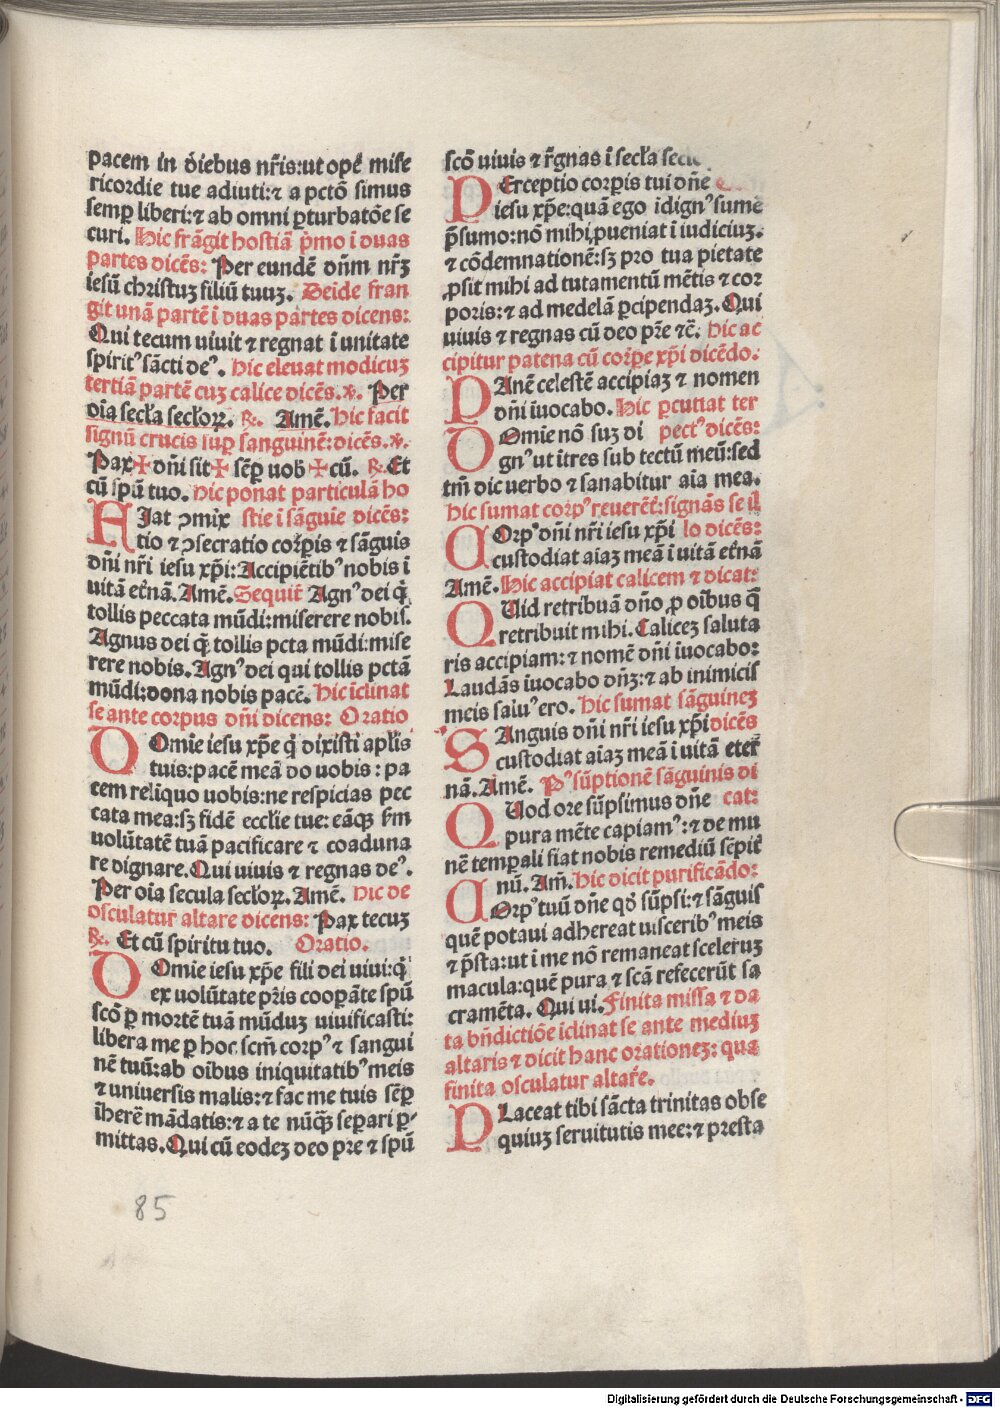 pacem in diebus nr̃is:ut ope᷑ mise
ricordie tue adiuti:⁊ a pctõ simus
semꝑ liberi:⁊ ab omni ꝑturbatõe se
curi. Hic frãgit hostiã p̃mo ĩ duas
partes dicẽs: Per eundẽ dñm nr̃ʒ
iesũ christuʒ filiũ tuuʒ. Deide fran
git unã partẽ ĩ duas partes dicens:
Qui tecum uiuit ⁊ regnat ĩ unitate
spiritꝰ sãcti deꝰ. Hic eleuat modicuʒ
tertiã partẽ cuʒ calice dicẽs.v̾. Per
oĩa secła secłoꝝ. R̾. Amẽ. Hic facit
signũ crucis suꝑ sanguinẽ:dicẽs.v̾.
Pax ✠ dñi sit ✠ sẽꝑ uob̃ ✠ cũ. R̾. Et
cũ spũ tuo. Hic ponat particulã ho
FIat ↄmix stie ĩ sãguĩe dicẽs:
tio ⁊ ↄsecratio corꝑis ⁊ sãguis
dñi nr̃i iesu xp̃i:Accipiẽtibꝰ nobis ĩ
uitã et̃nã.Amẽ.Sequit̃ Agnꝰ dei q̃
tollis peccata mũdi:miserere nobis.
Agnus dei q̃ tollis pcta mũdi:mise
rere nobis.Agnꝰ dei qui tollis pctã
mũdi:dona nobis pacẽ. Hic ĩclinat
se ante corpus dñi dicens: Oratio
DOmĩe iesu xp̃e q̃ dixisti apłis
tuis:pacẽ meã do uobis:pa
cem relĩquo uobis:ne respicias pec
cata mea:sʒ fidẽ ecclĩe tue:eãqʒ s̃m
uolũtatẽ tuã pacificare ⁊ coaduna
re dignare.Qui uiuis ⁊ regnas deꝰ.
Per oĩa secula secłoꝝ.Amẽ. Hic de
osculatur̃ altare dicens: Pax tecuʒ
R̾. Et cũ spiritu tuo. Oratio.
DOmĩe iesu xp̃e fili dei uiui:q̃
ex uolũtate pr̃is cooperãte spũ
scõ ꝑ mortẽ tuã mũduʒ uiuificasti:
libera me ꝑ hoc scm̃ corpꝰ ⁊ sangui
nẽ tuũ:ab oĩbus iniquitatibꝰ meis
⁊ uniuersis malis:⁊ fac me tuis sẽꝑ
ĩherẽ mãdatis:⁊ a te nũqʒ seꝑari ꝑ-
mittas.Qui cũ eodeʒ deo pr̃e ⁊ spũ
scõ uiuis ⁊ r̃gnas ĩ secła
PErceptio corꝑis tui dñe
iesu xp̃e:quã ego ĩdignꝰ sume
p̃sumo:nõ mihi ꝓueniat ĩ iudiciuʒ.
⁊ cõdemnationẽ:sʒ pro tua pietate
ꝓsit mihi ad tutamentũ mẽtis ⁊ cor
poris:⁊ ad medelã ꝑcipiendaʒ.Qui
uiuis ⁊ regnas cũ deo pr̃e ⁊c̃. Hic ac
cipitur patena cũ corꝑe xp̃i dicẽdo:
PAnẽ celestẽ accipiaʒ ⁊ nomen
dñi ĩuocabo. Hic ꝑcutiat ter
DOmĩe nõ suʒ di pectꝰ dicẽs:
gnꝰ ut ĩtres sub tectũ meũ:sed
tm̃ dic uerbo ⁊ sanabitur aĩa mea.
Hic sumat corpꝰ reuerẽt̃:signãs se il
COrpꝰ dñi nr̃i iesu xp̃i lo dicẽs:
custodiat aĩaʒ meã ĩ uitã et̃nã
Amẽ. Hic accipiat calicem ⁊ dicat:
QUid retribuã dño ꝓ oĩbus q̃
retribuit mihi.Caliceʒ saluta
ris accipiam:⁊ nomẽ dñi ĩuocabo:
Laudãs ĩuocabo dñʒ:⁊ ab inimicis
meis saluꝰ ero. Hic sumat sãguineʒ
SAnguis dñi nr̃i iesu xp̃i dicẽs
custodiat aĩaʒ meã ĩ uitã eter̃
nã.Amẽ. Pꝰ sũptionẽ sãguinis di
QUod ore sũpsimus dñe cat:
pura mẽte capiamꝰ:⁊ de mu
nẽ temꝑali fiat nobis remediũ sẽpit̃
nũ.Am̃.Hic dicit purificãdo:
COrpꝰ tuũ dñe qd̃ sũpsi:⁊ sãguis
quẽ potaui adhereat uisceribꝰ meis
⁊ p̃sta:ut ĩ me nõ remaneat sceleruʒ
macula:quẽ pura ⁊ scã refecerũt sa
cramẽta. Qui ui.Finita missa ⁊ da
ta bñdictiõe ĩclinat se ante mediuʒ
altaris ⁊ dicit hanc orationeʒ: qua
finita osculatur altar̃e.
PLaceat tibi sãcta trinitas obse
quiuʒ seruitutis mee:⁊ presta
85
Digitalisierung gefördert durch die Deutsche Forschungsgemeinschaft - DFG